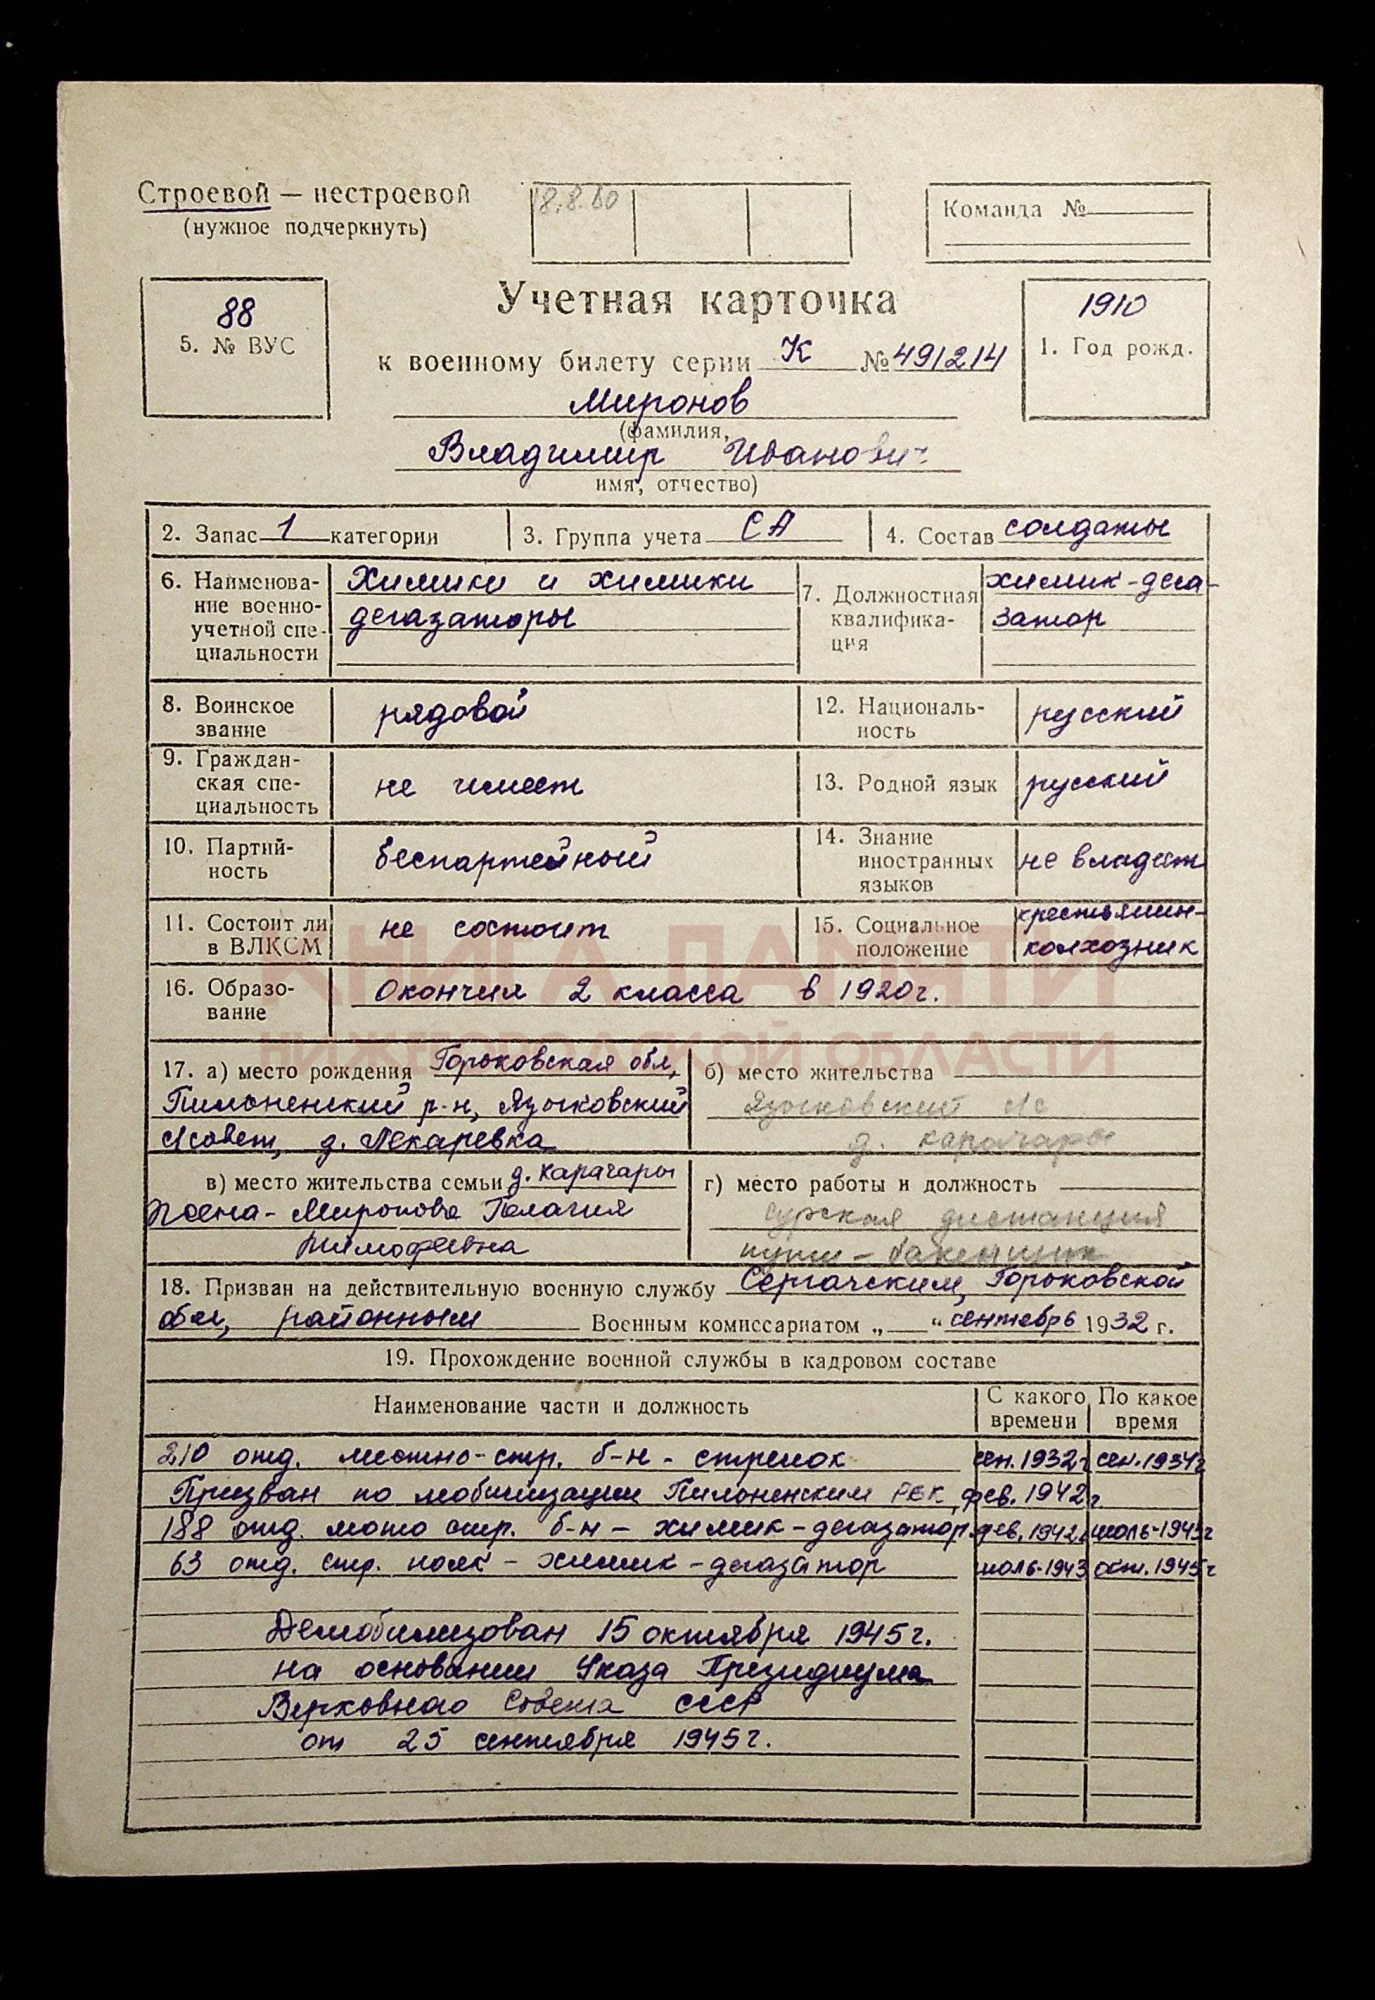 Строевой — нестроевой
(нужное подчеркнуть)
18.8.60
Команда №
88
5. № ВУС
Учетная карточка
к военному билету серии К № 491214
1910
1. Год рожд.
Миронов
(фамилия,
Владимир Иванович
имя, отчество)
2. Запас 1 категории
3. Группа учета СА
4. Состав солдаты
6. Наименова-
ние военно-
учетной спе-
циальности
Химики и химики
дегазаторы
7. Должностная
квалифика-
ция
химик-дега-
затор
8. Воинское
звание
рядовой
12. Националь-
ность
русский
9. Граждан-
ская спе-
циальность
не имеет
13. Родной язык
русский
10. Партий-
ность
беспартейный
14. Знание
иностранных
языков
не владеет
11. Состоит ли
в ВЛКСМ
не состоит
15. Социальное
положение
крестьянин-
колхозник
КНИГА ПАМЯТИ
НИЖЕГОРОДСКОЙ ОБЛАСТИ
16. Образо-
вание
Окончил 2 класса в 1920г.
17. а) место рождения Горьковская обл,
Пильненский р-н, Языковский
с/совет, д. Пекаревка
б) место жительства
Языковский с/с
д. Карачары
в) место жительства семьи д. Карачары
Жена - Миронова Пелагия
Тимофеевна
г) место работы и должность
Сурская дистанция
пути - бакенщик
18. Призван на действительную военную службу Сергачским, Горьковской
обл, районным Военным комиссариатом „ “ сентябрь 1932 г.
19. Прохождение военной службы в кадровом составе
Наименование части и должность
С какого
времени
По какое
время
210 отд. местно-стр. б-н - стрелок сен. 1932г сен. 1934г
Призван по мобилизации Пильненским РВК фев. 1942г
188 отд. мото стр. б-н - химик-дегазатор фев. 1942г июль-1943г
63 отд. стр. полк - химик-дегазатор июль-1943 окт. 1945г
Демобилизован 15 октября 1945г.
на основании Указа Президиума
Верховного Совета СССР
от 25 сентября 1945г.